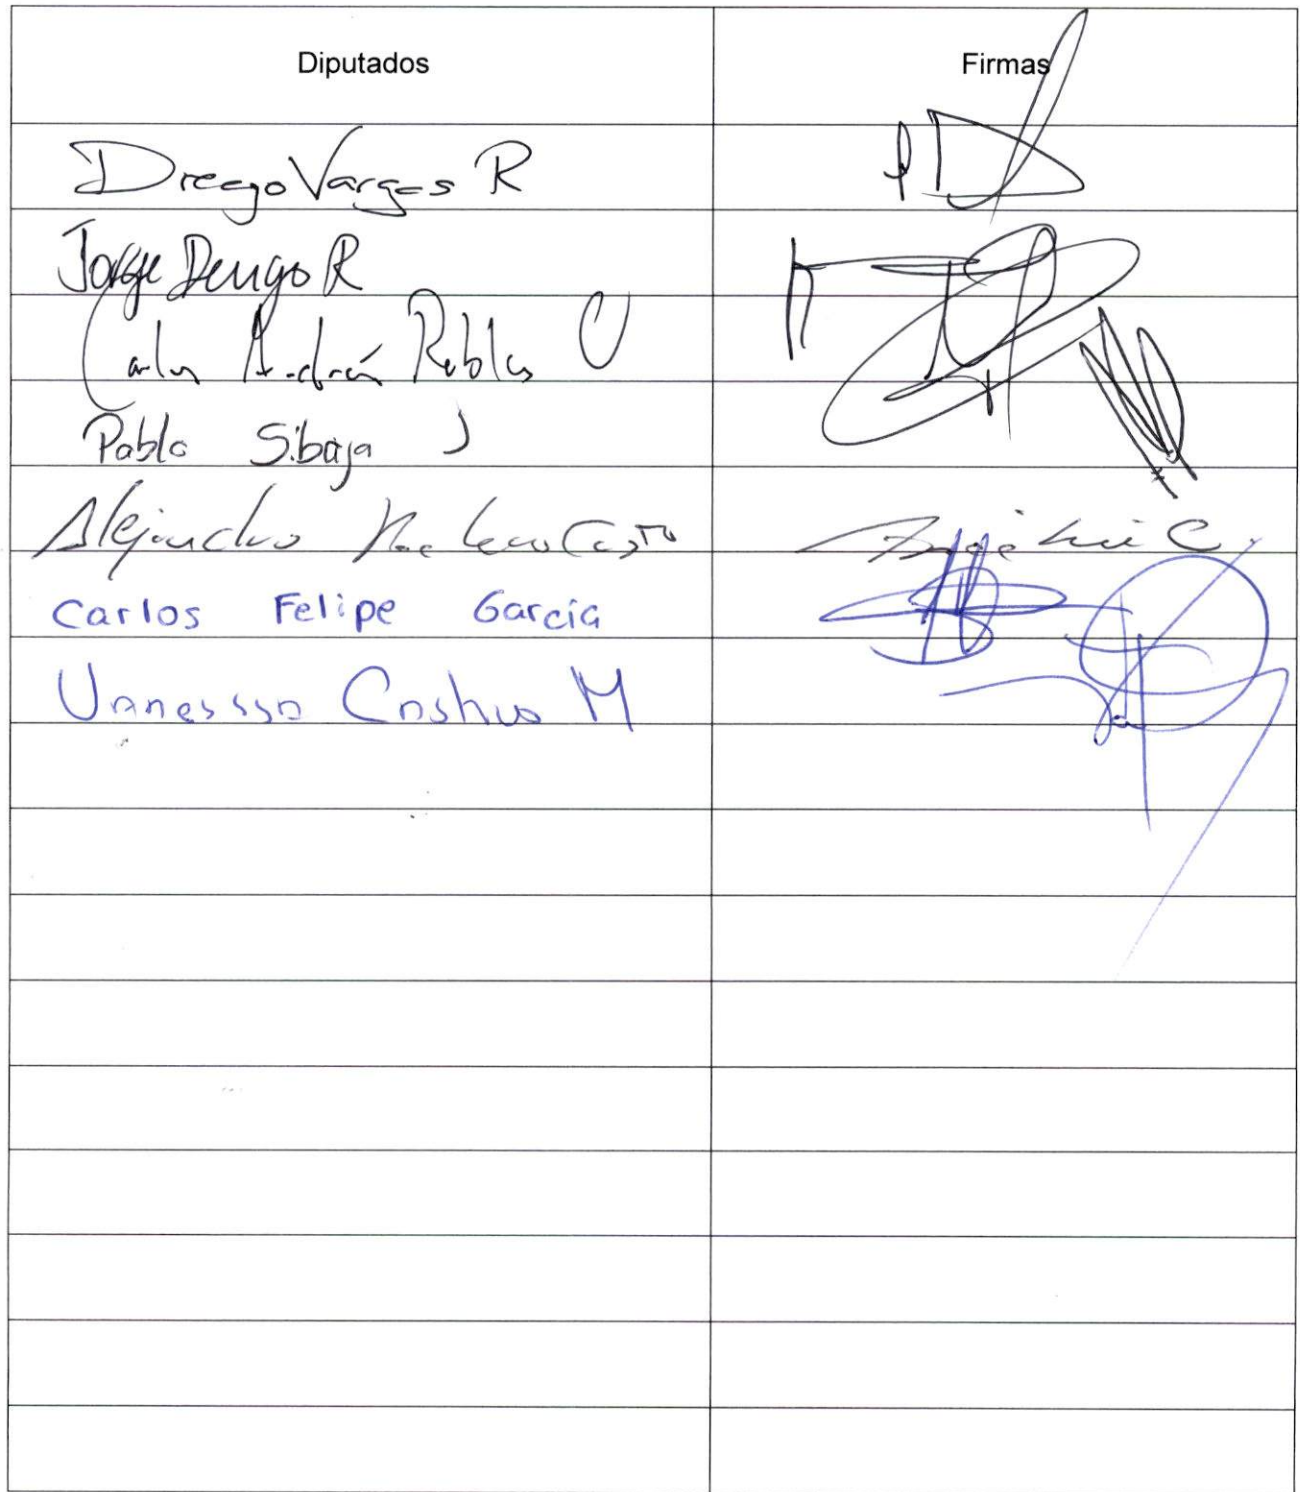 Diputados Firmas
Diego Vargas R
Jorge Dengo R
Carlos Andrés Robles O
Pablo Sibaja J
Alejandro Pacheco Castro
Carlos Felipe García
Vanessa Castro M